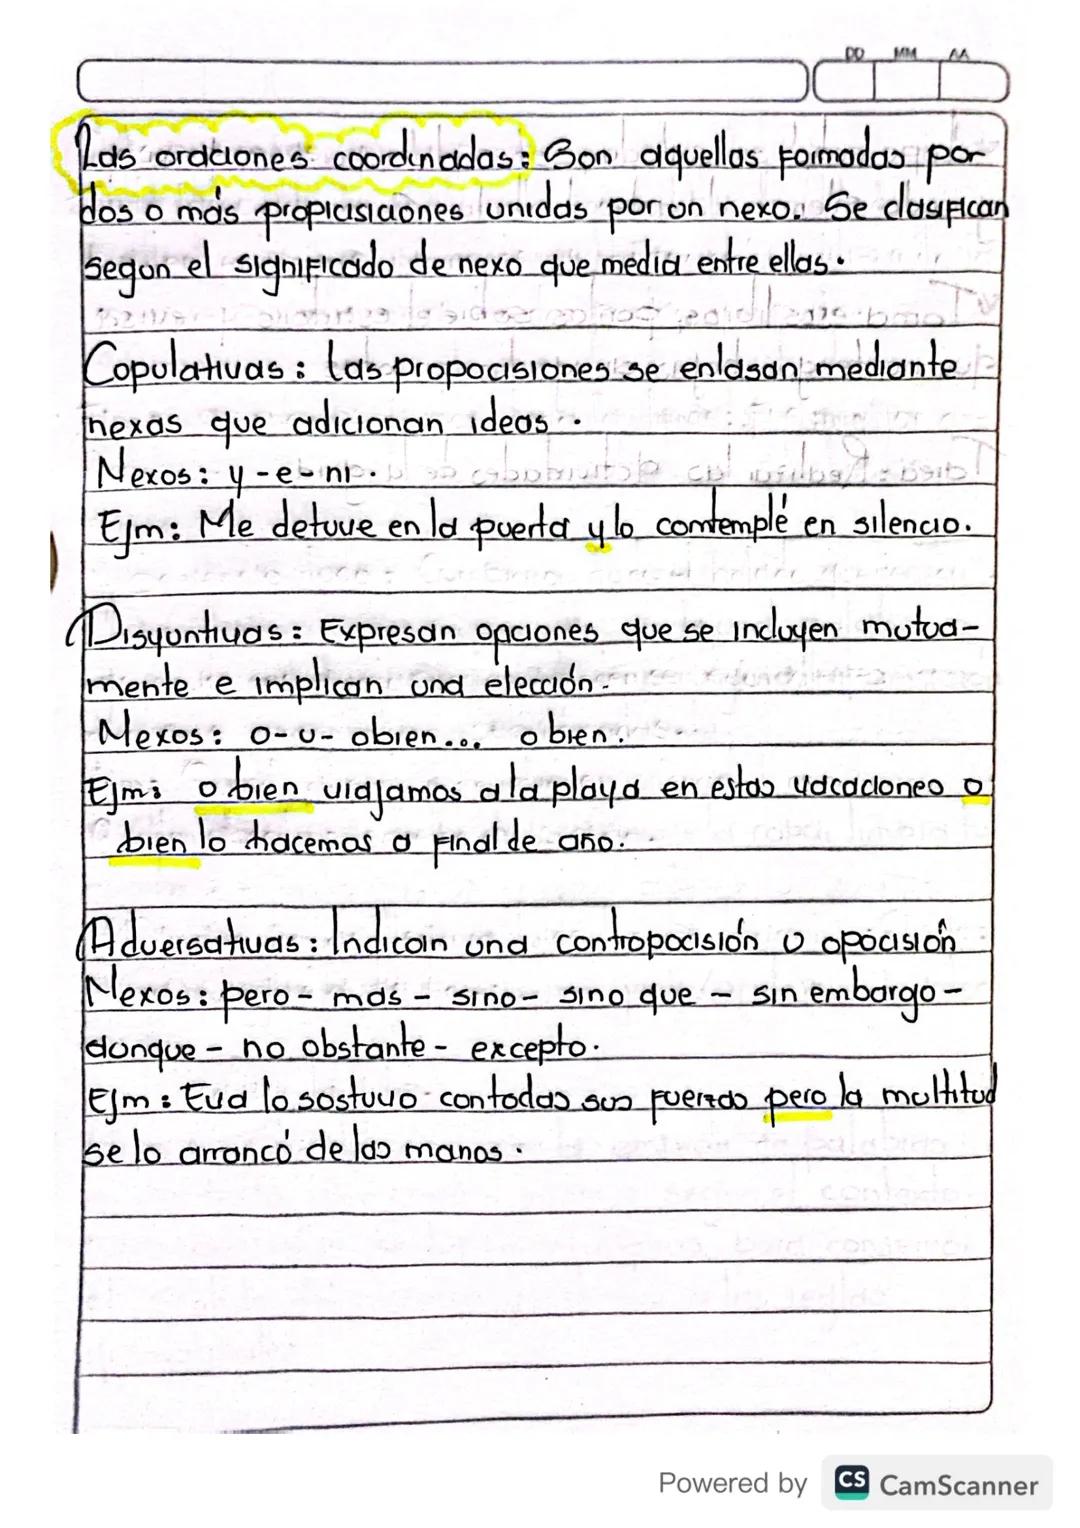 DD MM AA
Las oraciones coordinadas: Son aquellas formadas por
dos o más propicisiciones unidas por un nexo. Se clasifican
segun el significado de nexo que media entre ellas.
Copulativas: Las propocisiones se enlasan mediante
nexas que adicionan ideas.
Nexos: y - e - ni.
Ejm: Me detuve en la puerta y lo comtemplé en silencio.
Disyuntivas: Expresan opciones que se incluyen mutua-
mente e implican una elección.
Nexos: o - u - obien... obien.
Ejm: o bien viajamos a la playa en estas vacaciones o
bien lo hacemos a final de año.
Adversativas: Indican una contropocisión u opocisión
Nexos: pero - mas - sino - sino que - sin embargo -
aunque - no obstante - excepto.
Ejm: Eva lo sostuvo contodas sus fuerzas pero la multitud
se lo arrancó de las manos.
Powered by CS CamScanner